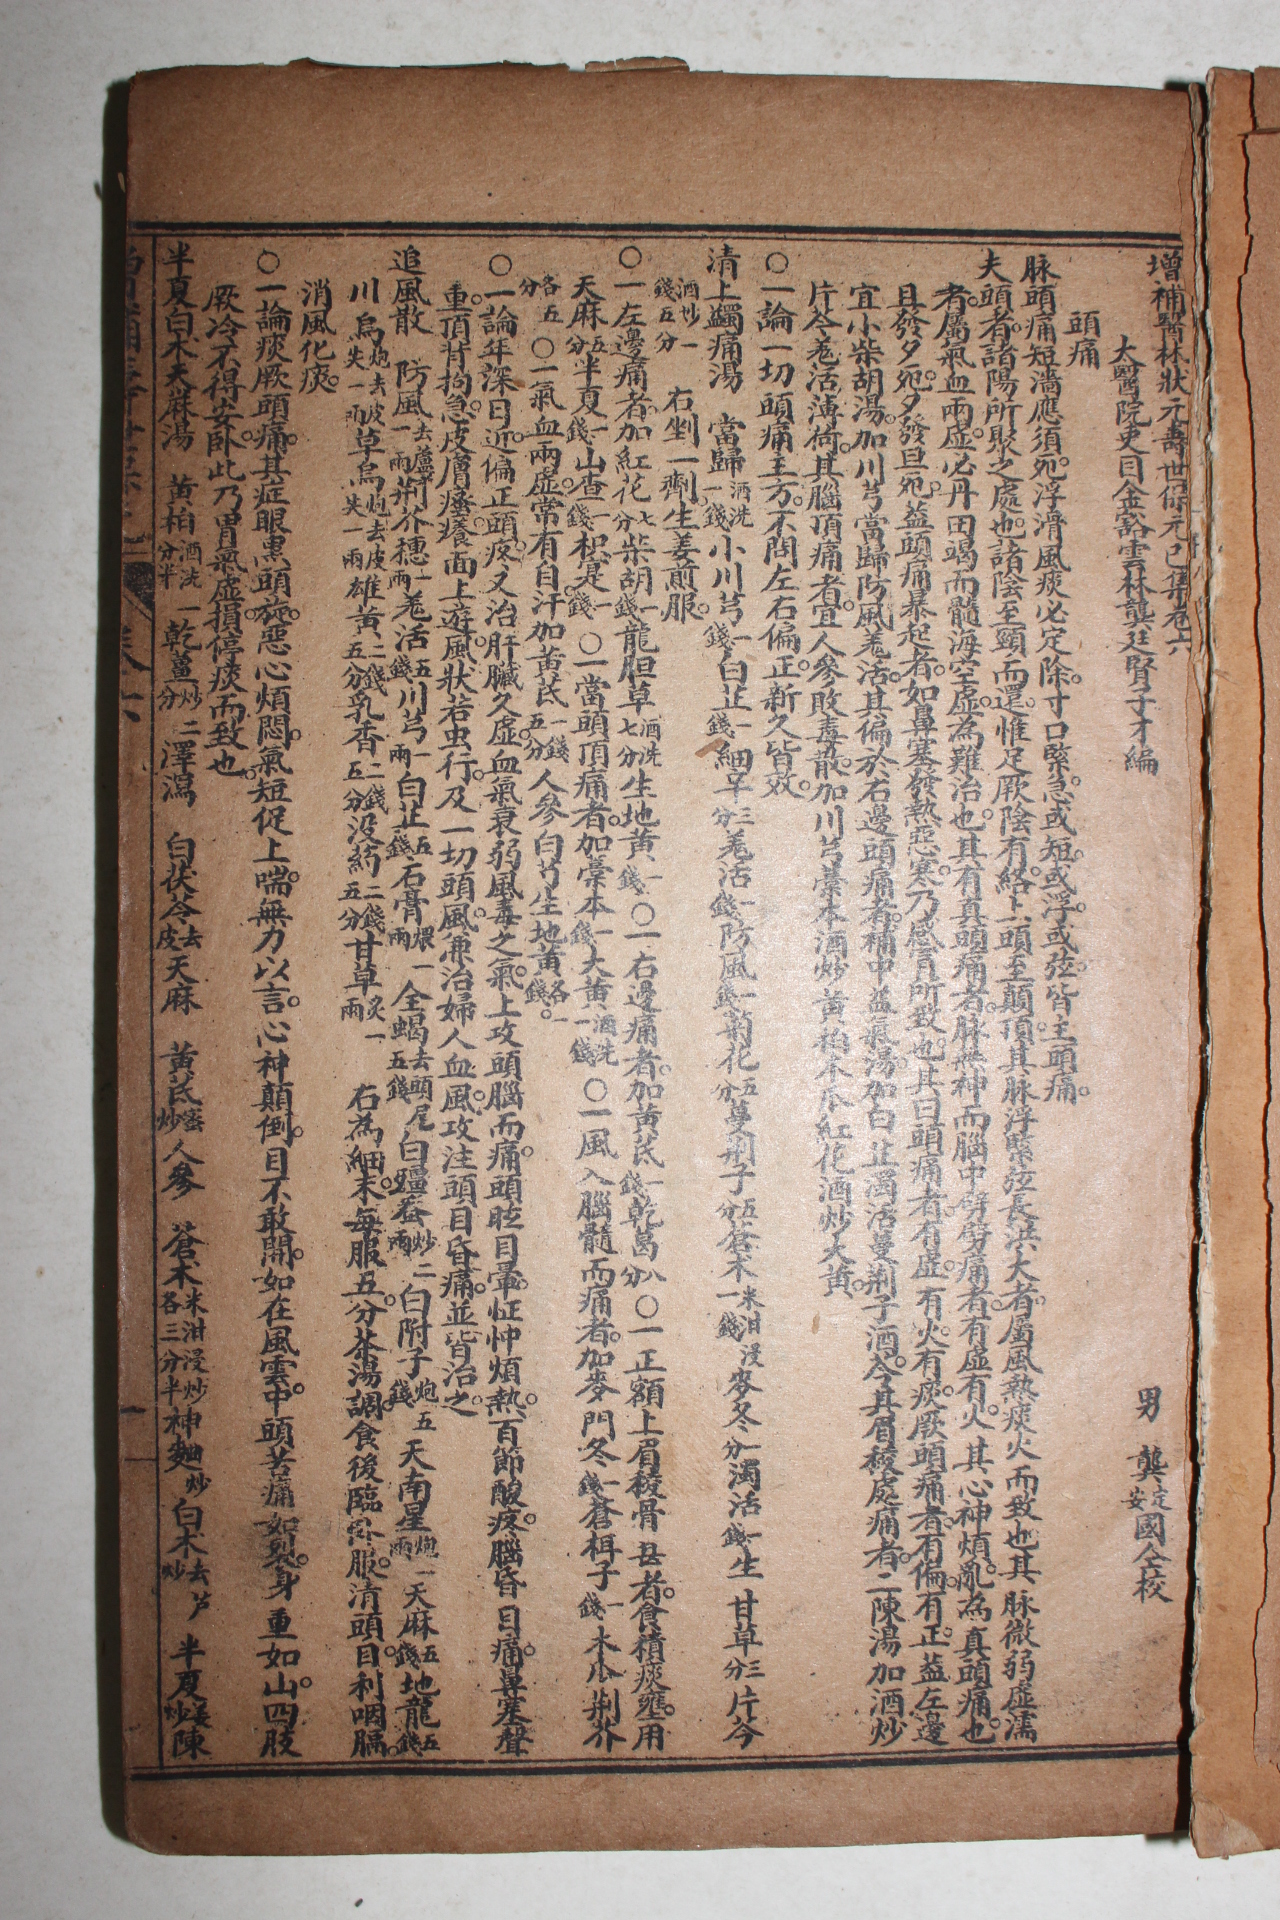 增補醫林狀元壽世保元己集卷六
太醫院吏目金谿雲林龔廷賢子才編
男 龔定安國仝校
頭痛
脉頭痛短濇應須死浮滑風痰必定除寸口緊急或短或浮或弦皆主頭痛
夫頭者諸陽所聚之處也諸陰至頸而還惟足厥陰有絡上頭至顛頂其脉浮緊弦長洪大者屬風熱痰火而致也其脉微弱虛濡
者屬氣血兩虛必丹田竭而髓海空虛為難治也其有真頭痛者脉無神而腦中劈劈痛者有虛有火其心神煩亂為真頭痛也
旦發夕死夕發旦死蓋頭痛暴起者如鼻塞發熱惡寒乃感冒所致也其曰頭痛者有虛有火有痰厥頭痛者有偏有正蓋左邊
宜小柴胡湯加川芎當歸防風羗活其偏於右邊頭痛者補中益氣湯加白芷濁活蔓荆子酒芩其眉稜處痛者二陳湯加酒炒
片芩羗活薄荷其腦頂痛者宜人參敗毒散加川芎藁本酒炒黃柏木瓜紅花酒炒大黃
〇一論一切頭痛主方不問左右偏正新久皆效
清上蠲痛湯 當歸酒洗一錢小川芎一錢白芷一錢細辛三分羗活一錢防風一錢菊花五分蔓荆子五分蒼朮米泔浸一錢麥冬一分濁活一錢生 甘草三分片芩
酒炒一錢五分 右剉一劑生姜煎服
〇一左邊痛者加紅花七分柴胡一錢龍胆草酒洗七分生地黃一錢 〇一右邊痛者加黃茋一錢乾葛八分 〇一正額上眉稜骨甚者食積痰壅用
天麻五分半夏一錢山查一錢枳寔一錢 〇一當頭頂痛者加藁本一錢大黃酒洗一錢 〇一風入腦髓而痛者加麥門冬一錢蒼枏子一錢木瓜荆芥
各五分 〇一氣血兩虛常有自汗加黃茋一錢五分人參白芍生地黃各一錢
〇一論年深日近偏正頭疼又治肝臟久虛血氣衰弱風毒之氣上攻頭腦而痛頭眩目暈怔忡煩熱百節酸疼腦昏目痛鼻塞聲
重頂背拘急皮膚瘙癢面上遊風狀若虫行及一切頭風兼治婦人血風攻注頭目昏痛並皆治之
追風散 防風去蘆一兩荆介穗一兩羗活五錢川芎一兩白芷五錢石膏煨一兩全蝎去頭尾五錢白殭蚕炒二兩白附子炮五錢天南星炮一兩天麻五錢地龍五錢
川烏炮去皮失一兩草烏炮去皮失一兩雄黃二錢五分乳香二錢五分没葯二錢五分甘草炙一兩 右為細末每服五分茶湯調食後臨臥服清頭目利咽膈
消風化痰
〇一論痰厥頭痛其症眼黑頭旋惡心煩悶氣短促上喘無力以言心神顛倒目不敢開如在風雲中頭苦痛如裂身重如山四肢
厥冷不得安卧此乃胃氣虛損停痰而致也
半夏白朮天蔴湯 黃柏酒洗一分半乾薑炒二分澤瀉 白茯苓去皮天麻 黃茋蜜炒人參 蒼朮米泔浸炒各三分半神麯炒白朮去芦炒 半夏姜炒陳